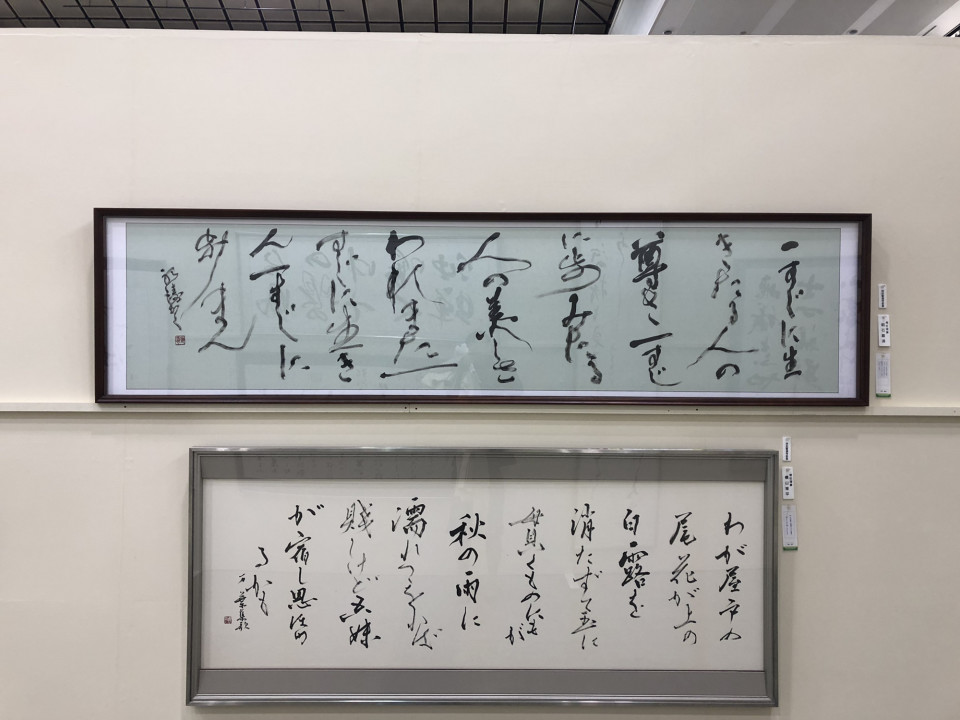 一すぢに生
きたる人の
尊さ一すぢ
に歩みたる
人の美しさ
われまた一
すぢに生き
ん一すぢに
歩まん
わが屋戸の
尾花が上の
白露を
消たずて玉に
貫くものにもが
秋の雨に
濡れつつをれば
賤しけど吾妹
が宿し思ほゆ
るかも
万葉集